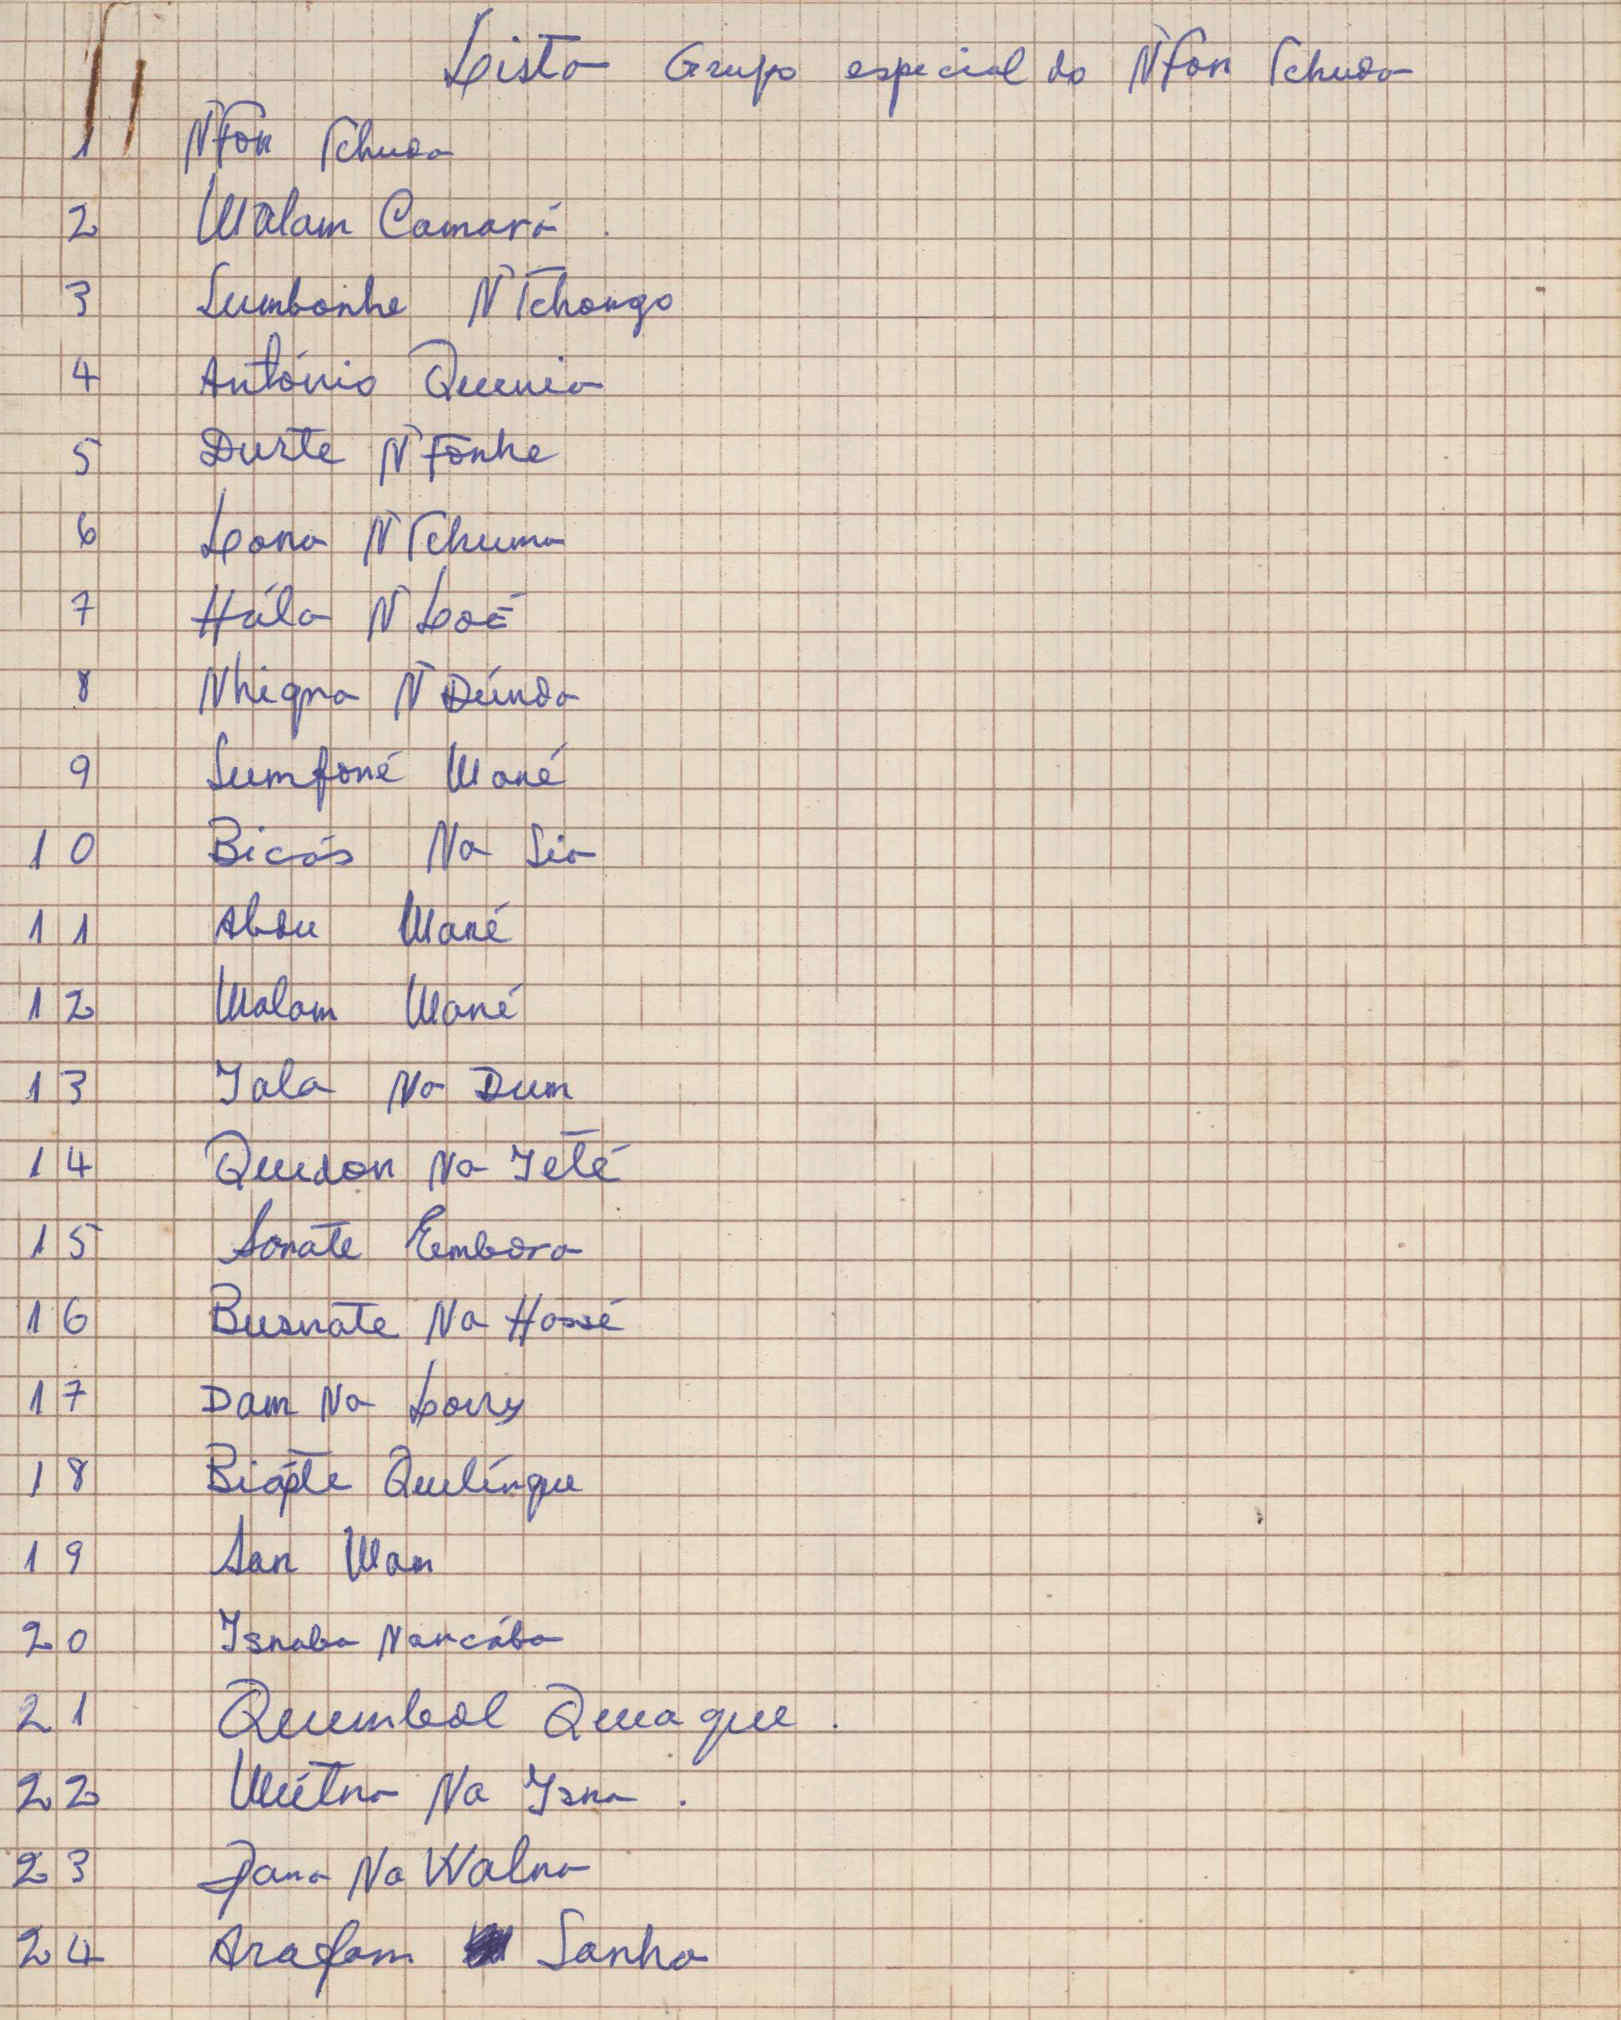 Lista Grupo especial do N'Fon Tchuda
1 N'Fon Tchuda
2 Malam Camará
3 Sumbonhe N'Tchongo
4 António Quenia
5 Durte N'Fonhe
6 Lona N'Tchuma
7 Hála N'Loé
8 Nhiqna N'Dúnda
9 Sumfoné Mané
10 Bicós Na Sia
11 Abdu Mané
12 Malam Mané
13 Iala Na Dum
14 Quidon Na Ieté
15 Sonate Embora
16 Busnate Na Hossé
17 Dam Na
18 Biópte Quelíngue
19 San Man
20 Isnaba Nancába
21 Quumbal Quuaque.
22 Uétna Na Isna.
23 Dana Na Walna
24 Arafam Sanha